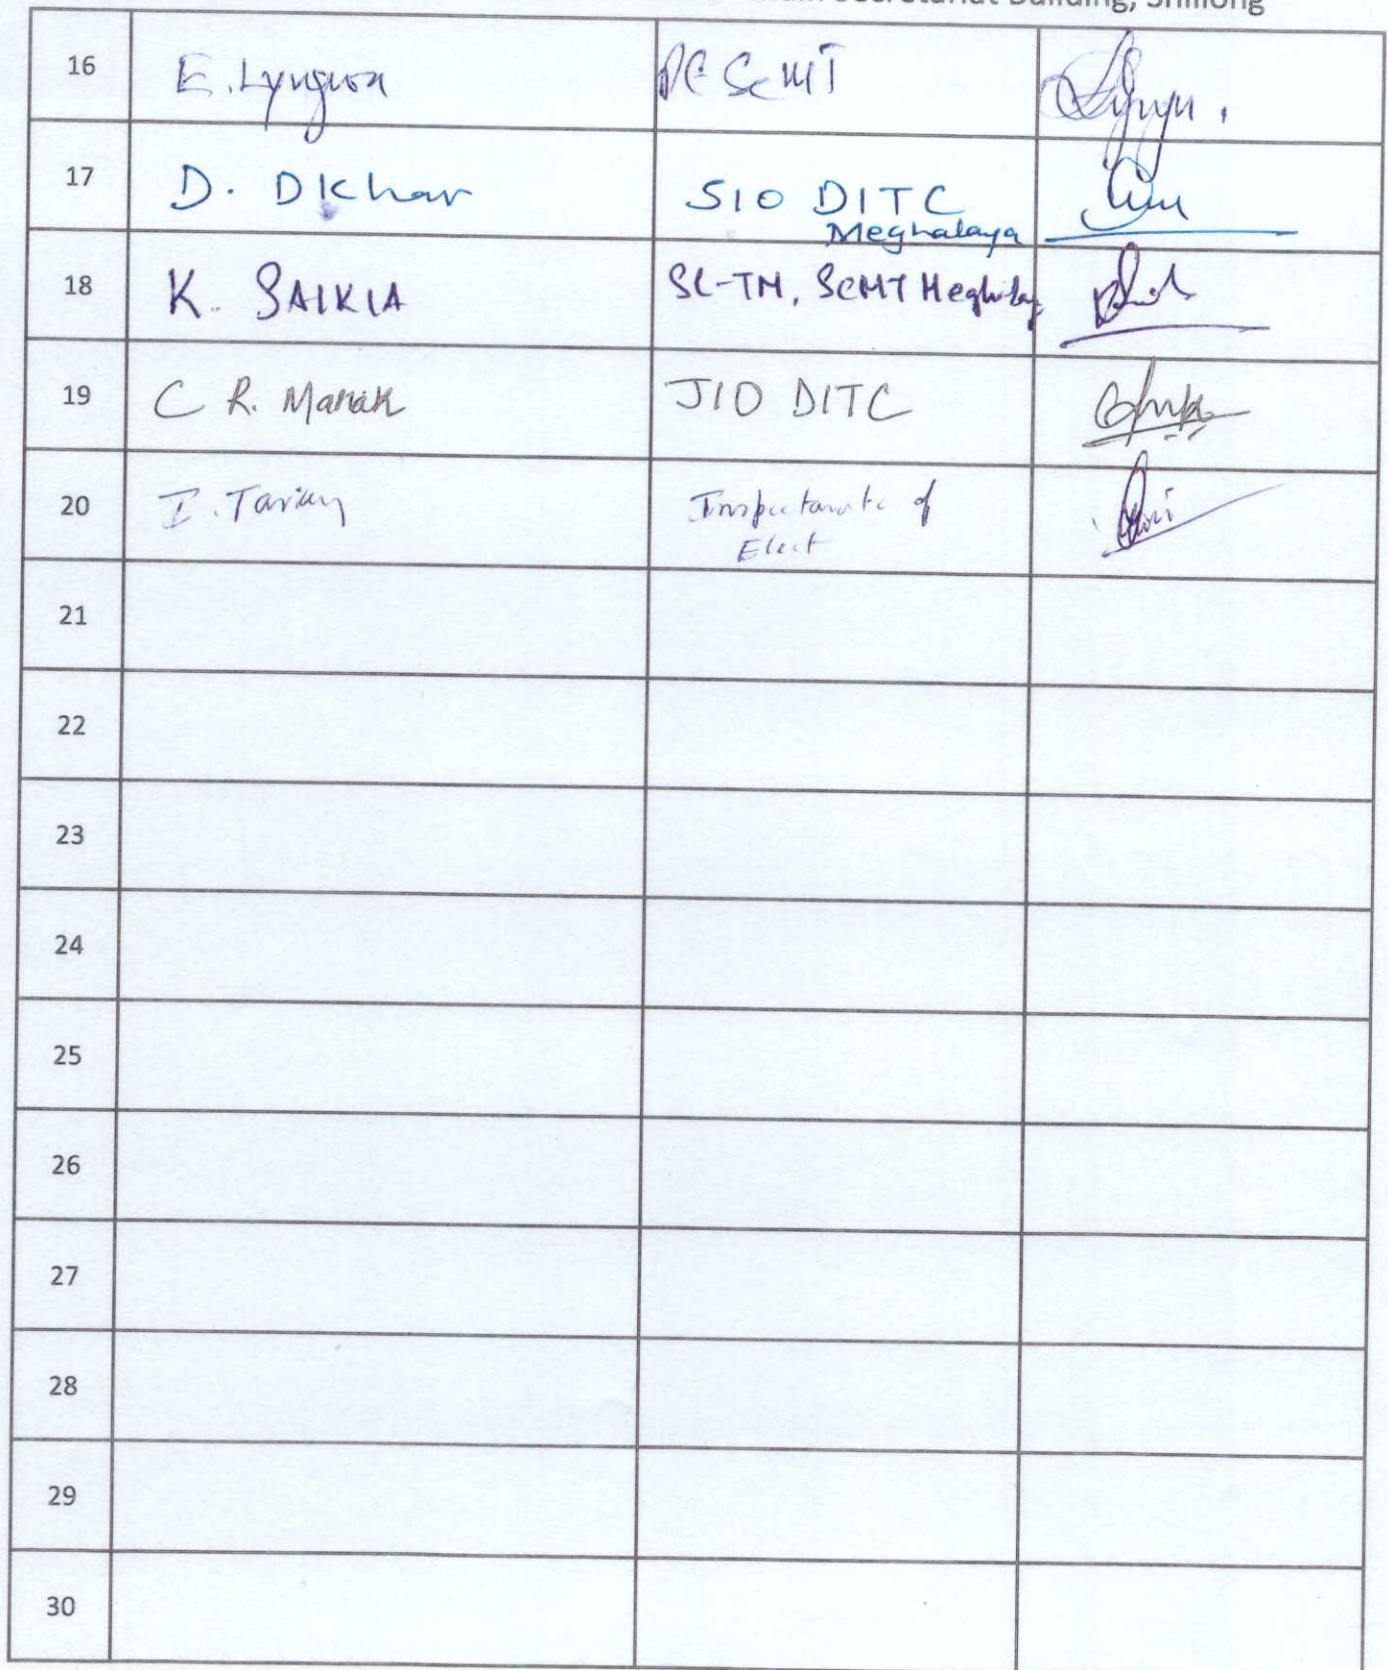 Main Secretariat Building, Shillong
16 E. Lyngwa SeMT
17 D. Dkhar SIO DITC
Meghalaya
18 K. SAIKIA SC-TM, SeMT Meghalaya
19 C R. Marak JIO DITC
20 I. Tariang Inspectorate of
Elect
21
22
23
24
25
26
27
28
29
30